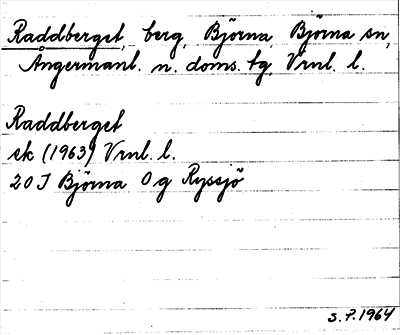 Raddberget, berg, Björna, Björna sn,
Ångermanl. n. doms. tg, Vrnl. l.
Raddberget
ek (1963) Vrnl. l.
20 J Björna O g Ryssjö
S.P. 1964